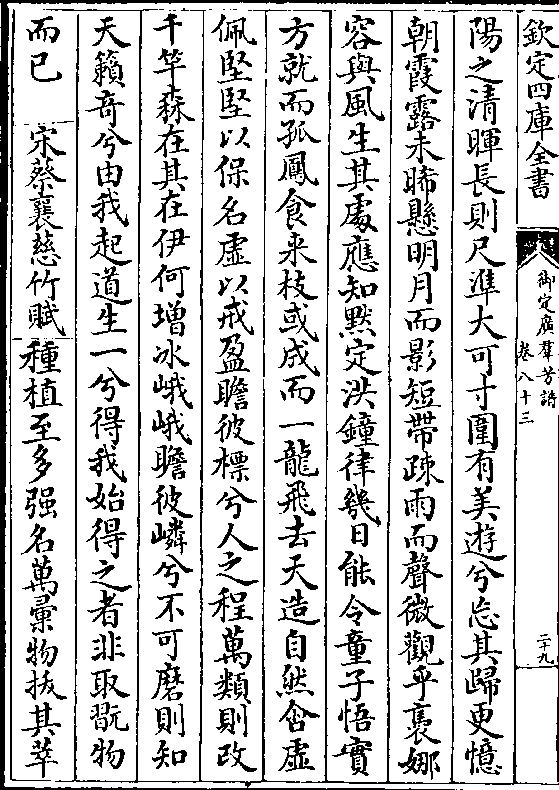 欽定四庫全書
御定廣羣芳譜
卷八十三
二十九
陽之清暉長則尺準大可寸圍有美遊兮忘其歸更憶
朝霞露未晞懸明月而影短帶疎雨而聲微觀乎裛娜
容與風生其處應知默定洪鐘律幾日能令童子悟實
方就而孤鳳食来枝或成而一龍飛去天造自然含虛
佩堅堅以保名虛以戒盈瞻彼標兮人之程萬類則改
千竿森在其在伊何增冰峨峨瞻彼嶙兮不可磨則知
天籟奇兮由我起道生一兮得我始得之者非取翫物
而已 宋蔡襄慈竹賦 種植至多强名萬彙物拔其萃